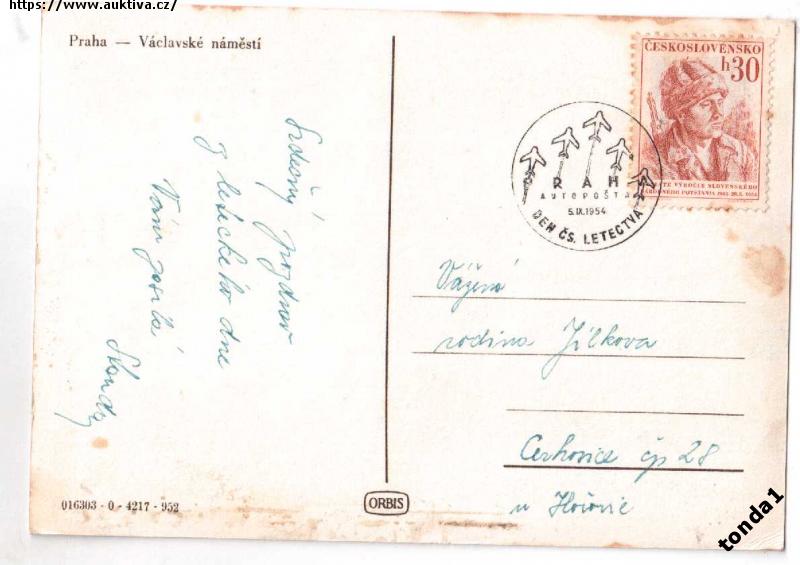 https://www.auktiva.cz/
Praha — Václavské náměstí
Srdečný pozdrav
z leteckého dne
Vám posílá
ČESKOSLOVENSKO
h30
VÝROČIE SLOVENSKÉHO
NÁRODNÉHO POVSTANIA
PRAHA
AUTOPOŠTA
5.IX.1954
DEN ČS. LETECTVA
Vážená
rodina Jílkova
Cerhovice čp 28
u Hořovic
016303 - 0 - 4217 - 952
ORBIS
tonda1